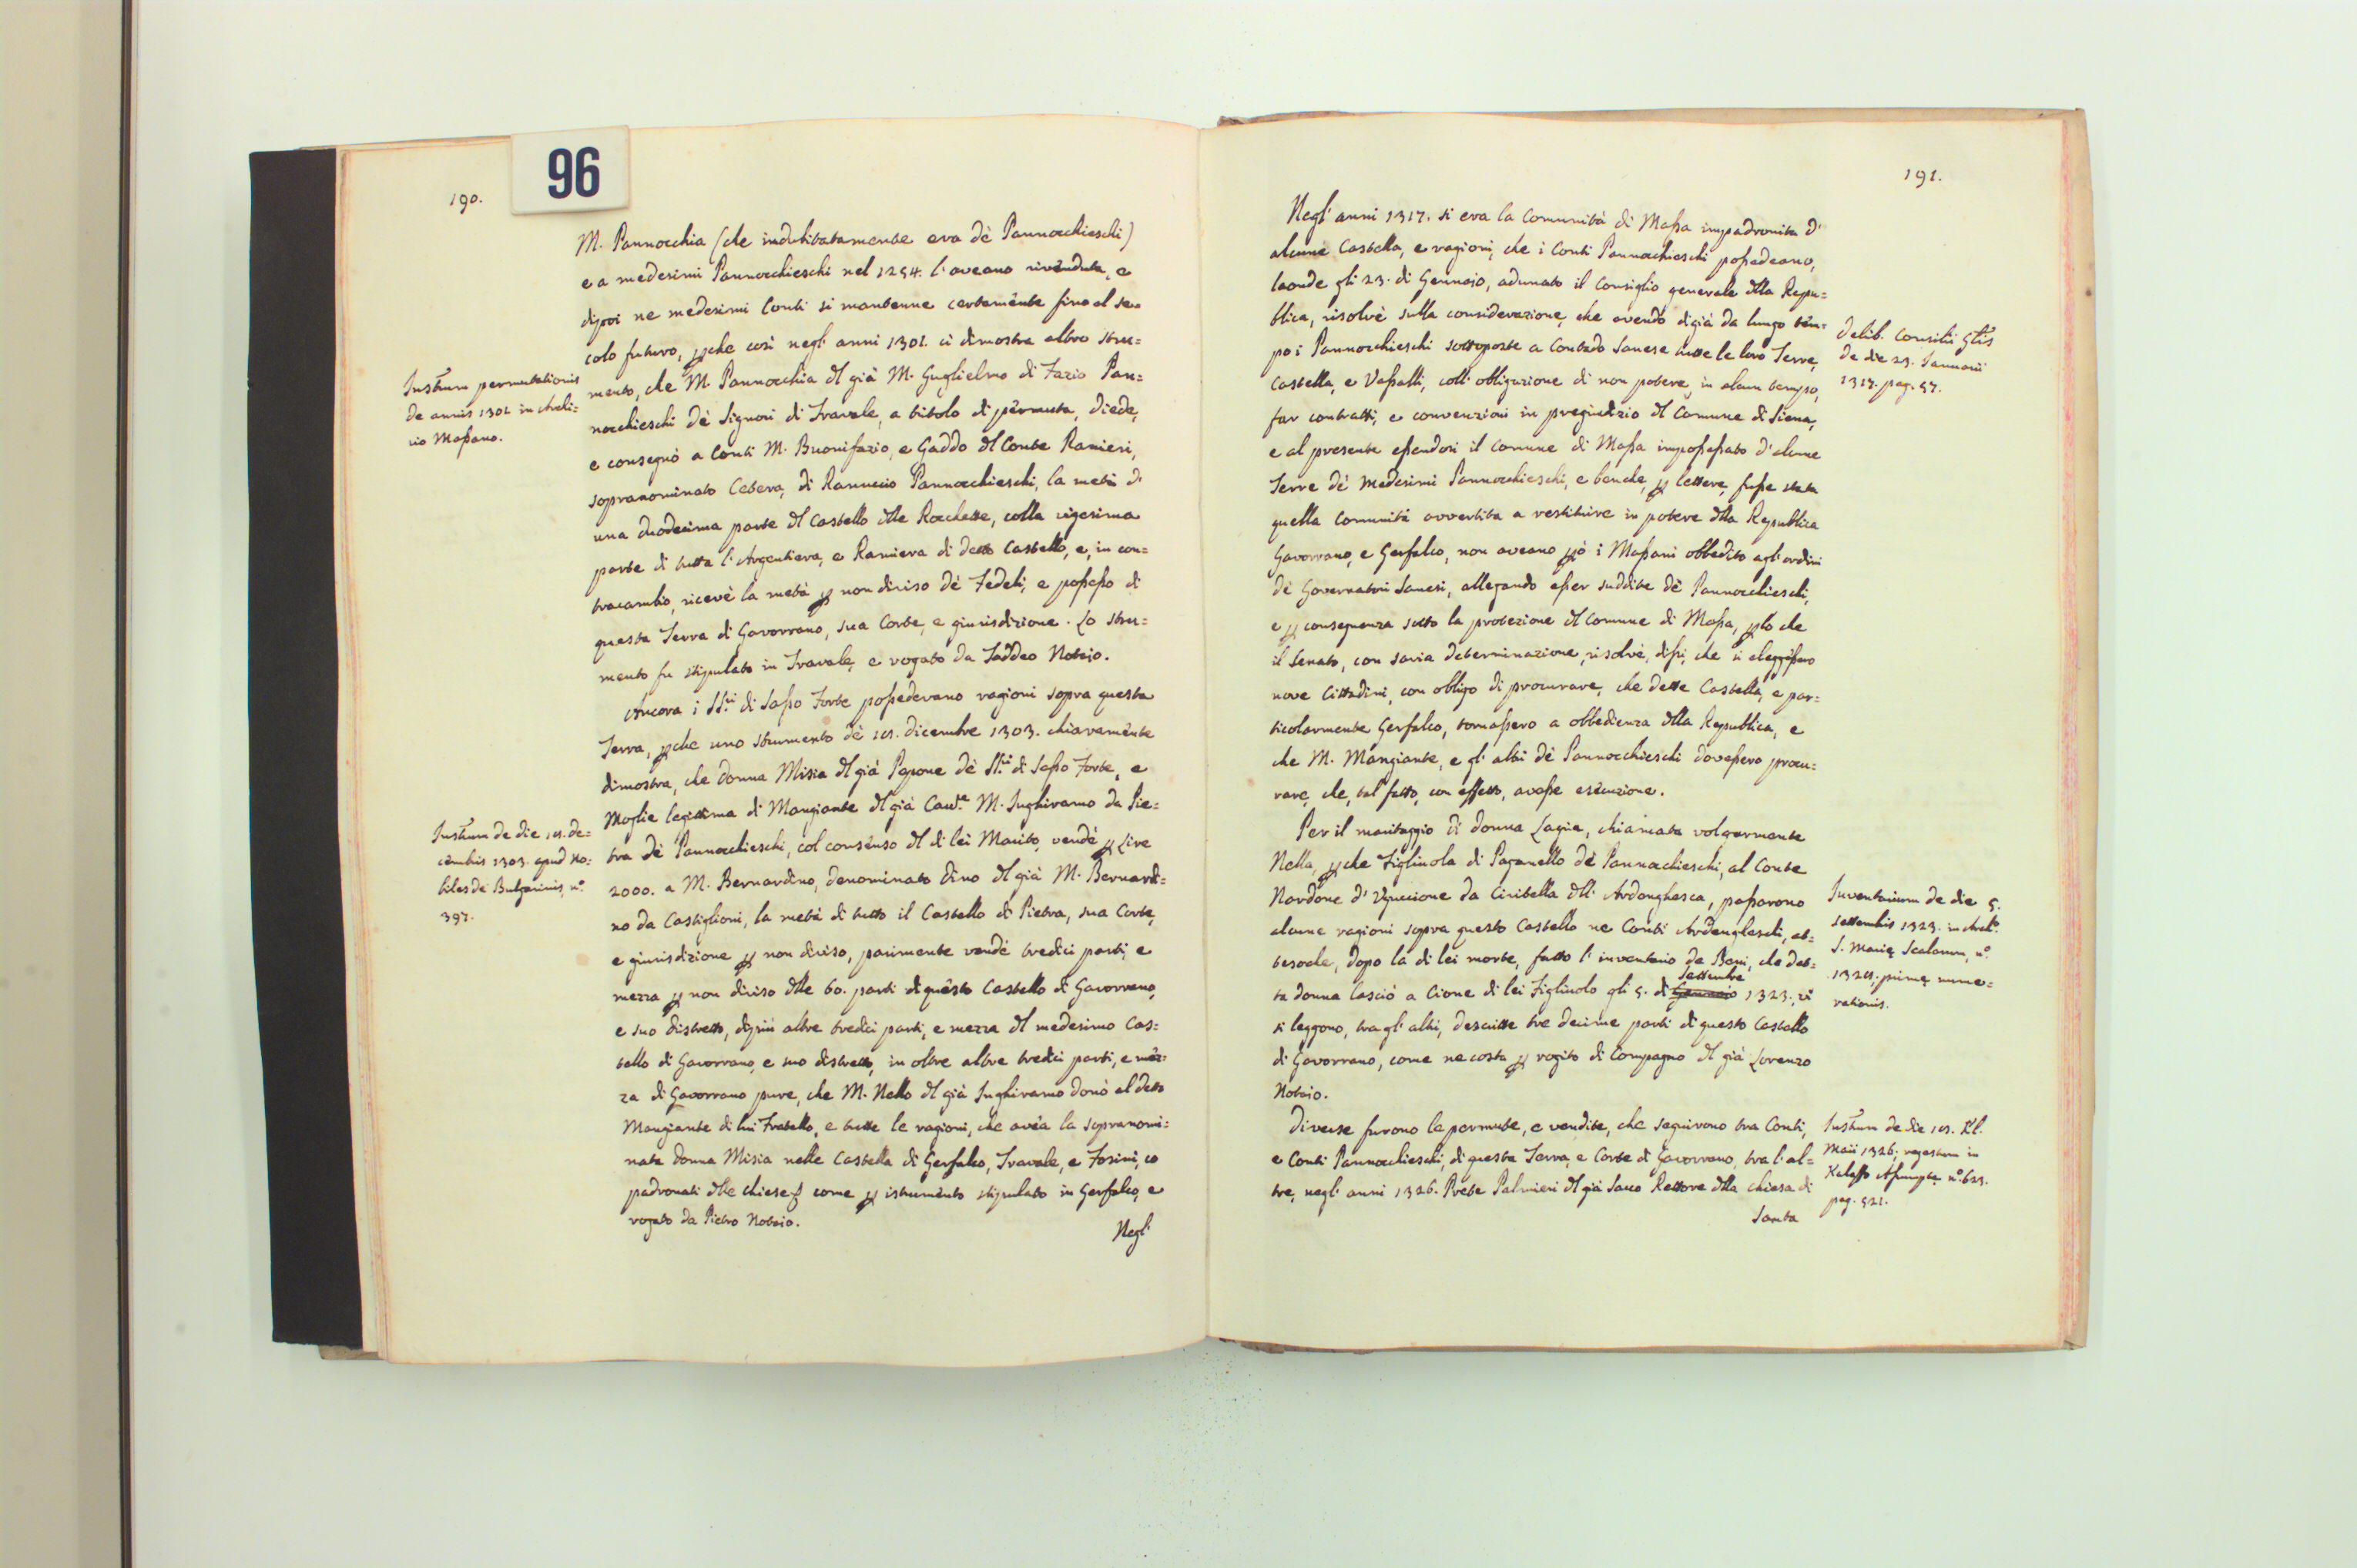 96
190.
M. Pannocchia (che indubitatamente era de' Pannocchieschi)
e a medesimi Pannocchieschi nel 1254. l'aveano rivenduta, e
dipoi ne medesimi Conti si mantenne certamente fino al se=
colo futuro, pche così negl'anni 1301. ci dimostra altro stru=
mento, che M. Pannocchia dl già M. Guglielmo di Fazio Pan=
nocchieschi de' Signori di Travale, a titolo di permuta, diede,
e consegnò a Conti M. Buonifazio, e Gaddo dl Conte Ranieri,
sopranominato Cetera, di Ranuccio Pannocchieschi, la metà d'
una duodecima parte dl Castello dlle Rocchette, colla vigesima
parte di tutta l'Argentiera, e Ramiera di detto Castello, e, in con=
tracambio, ricevè la metà p non diviso de' Fedeli, e possesso di
questa Terra di Gavorrano, sua Corte, e giurisdizione. Lo stru=
mento fu stipulato in Travale, e rogato da Taddeo Notaio.
Ancora i SS.ri di Sasso Forte possedevano ragioni sopra questa
Terra, pche uno strumento de' 14. dicembre 1303. chiaramente
dimostra, che donna Misia dl già Papone de' SS.ri di Sasso Forte, e
Moglie legittima di Mangiante dl già Cav.e M. Inghiramo da Pie=
tra de' Pannocchieschi, col consenso dl di lei Marito, vendè p Lire
2000. a M. Bernardino, denominato Dino dl già M. Bernardi=
no da Castiglioni, la metà di tutto il Castello di Pietra, sua Corte,
e giurisdizione p non diviso, parimente vendè tredici parti, e
mezza p non diviso dlle 60. parti di questo Castello di Gavorrano,
e suo distretto, dipiù altre tredici parti, e mezza dl medesimo Cas=
tello di Gavorrano, e suo distretto, in oltre altre tredici parti, e mez=
za di Gavorrano pure, che M. Nello dl già Inghiramo donò al detto
Mangiante di lui Fratello, e tutte le ragioni, che avea la sopranomi=
nata donna Misia nelle Castella di Gerfalco, Travale, e Fosini, co
padronati dlle chiese come p istrumento stipulato in Gerfalco, e
rogato da Pietro Notaio.
Negl'
Instum permutationis
de annis 1301 in Archi=
vio Massano.
Instum de die 14. de=
cembris 1303. apud No=
biles de Bulgarinis, n.o
397.
191.
Negl'anni 1317. si era la Comunità di Massa impadronita d'
alcune Castella, e ragioni, che i Conti Pannocchieschi possedeano,
laonde gli 23. di Gennaio, adunato il Consiglio generale dlla Repu=
blica, risolvè sulla considerazione, che avendo digià da lungo tem=
po i Pannocchieschi sottoposte a Contado Sanese tutte le loro Terre,
Castella, e Vassalli, coll'obligazione di non potere, in alcun tempo,
far contratti, e convenzioni in pregiudizio dl Comune di Siena,
e al presente essendosi il Comune di Massa impossessato d'alcune
Terre de' medesimi Pannocchieschi, e benche, p lettere, fusse stata
quella Comunità avvertita a restituire in potere dlla Republica
Gavorrano, e Gerfalco, non aveano pò i Massani obbedito agl'ordini
de' Governatori Sanesi, allegando esser suddite de' Pannocchieschi,
e p conseguenza sotto la protezione dl Comune di Massa, plo che
il Senato, con savia determinazione, risolvè, dissi, che si eleggessero
nove Cittadini, con obligo di procurare, che dette Castella, e par=
ticolarmente Gerfalco, tornassero a obbedienza dlla Republica, e
che M. Mangiante, e gl'altri de' Pannocchieschi dovessero procu=
rare, che, tal fatto, con effetto, avesse esecuzione.
Per il maritaggio di donna Lagia, chiamata volgarmente
Nella, pche Figliuola di Paganello de' Pannocchieschi, al Conte
Nardone d'Uguccione da Civitella dll'Ardenghesca, passarono
alcune ragioni sopra questo Castello ne Conti Ardengheschi, at=
tesoche, dopo la di lei morte, fatto l'inventario de Beni, che det=
ta donna lasciò a Cione di lei Figliuolo gli 5. di Gennaio Settembre 1323., vi
si leggono, tra gl'altri, descritte tre decime parti di questo Castello
di Gavorrano, come ne costa p rogito di Compagno dl già Lorenzo
Notaio.
Diverse furono le permute, e vendite, che seguirono tra Conti,
e Conti Pannocchieschi, di questa Terra, e Corte di Gavorrano, tra l'al=
tre, negl'anni 1326. Prete Palmieri dl già Sacco Rettore dlla chiesa di
Santa
Delib. Consilii Gtis
de die 23. Januarii
1317. pag. 57.
Inventarium de die 5.
settembris 1323. in Arch.o
S. Marię Scalarum, n.o
1324, primę nume=
rationis.
Instum de die 14. Kl.
Maii 1326, regestum in
Kaleffo Assumptę n.o 623.
pag. 521.